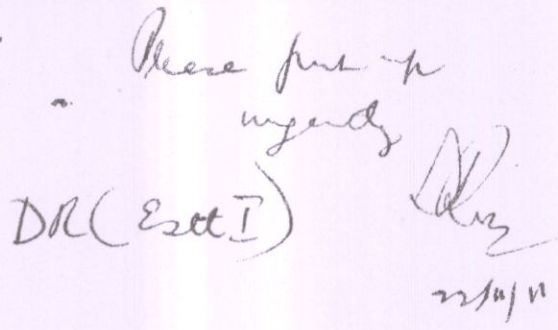 Please put up
urgently
DR (Estt I)
22/11/11